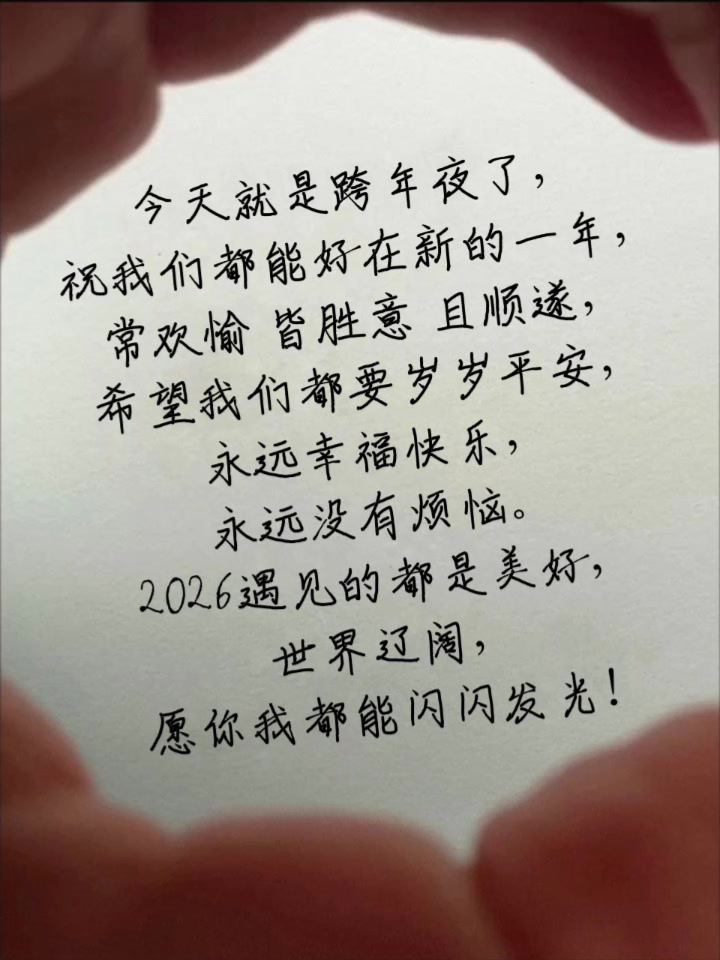 今天就是跨年夜了，
祝我们都能好在新的一年，
常欢愉 皆胜意 且顺遂，
希望我们都要岁岁平安，
永远幸福快乐，
永远没有烦恼。
2026遇见的都是美好，
世界辽阔，
愿你我都能闪闪发光！